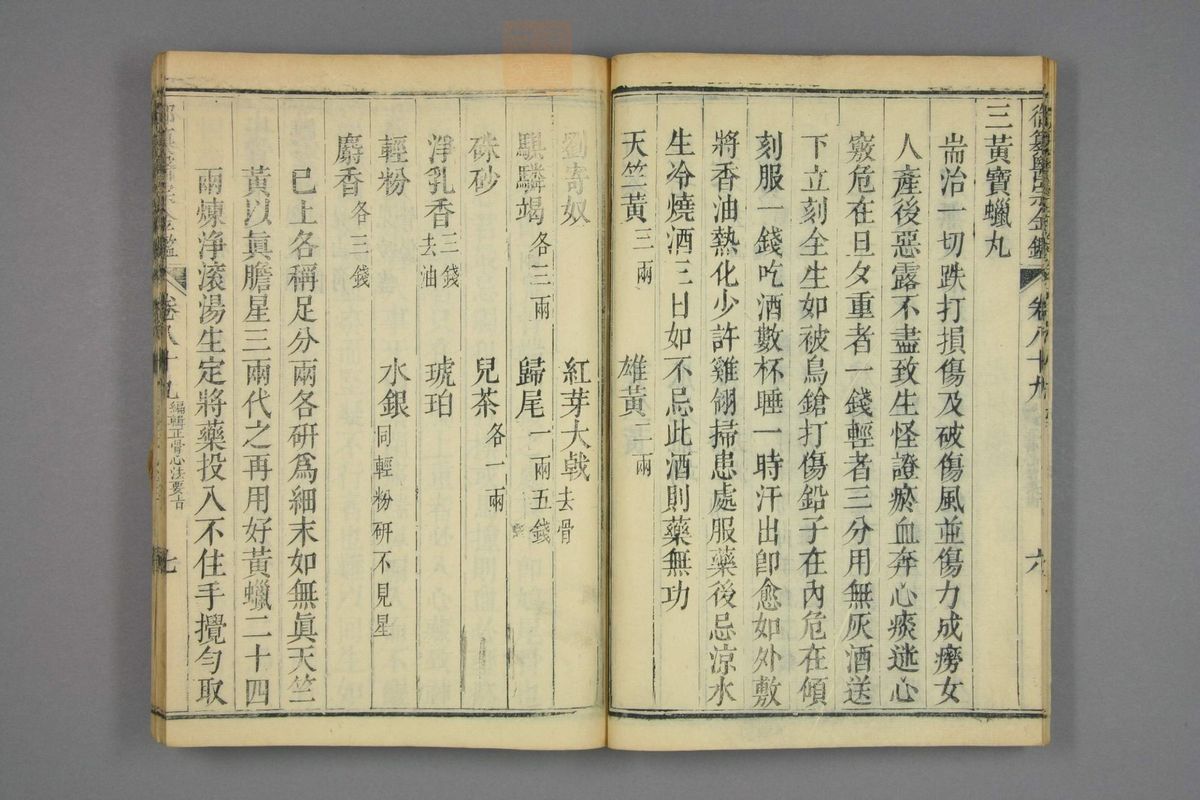 御纂醫宗金鑑 卷八十九 六
三黃寶蠟丸
耑治一切跌打損傷及破傷風並傷力成癆女
人產後惡露不盡致生怪證瘀血奔心痰迷心
竅危在旦夕重者一錢輕者三分用無灰酒送
下立刻全生如被鳥鎗打傷鉛子在內危在傾
刻服一錢吃酒數杯睡一時汗出卽愈如外敷
將香油熱化少許雞翎掃患處服藥後忌涼水
生冷燒酒三日如不忌此酒則藥無功
天竺黃三兩 雄黃二兩
劉寄奴 紅芽大戟去骨
騏驎竭各三兩 歸尾一兩五錢
硃砂 兒茶各一兩
淨乳香三錢去油 琥珀
輕粉 水銀同輕粉研不見星
麝香各三錢
已上各稱足分兩各研爲細末如無眞天竺
黃以眞膽星三兩代之再用好黃蠟二十四
兩煉净滾湯生定將藥投入不住手攪勻取
卷八十九 編輯正骨心法要旨 七